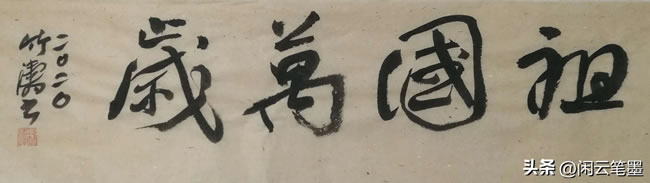 祖國萬歲
二〇二〇
竹 书
头条 @闲云笔墨